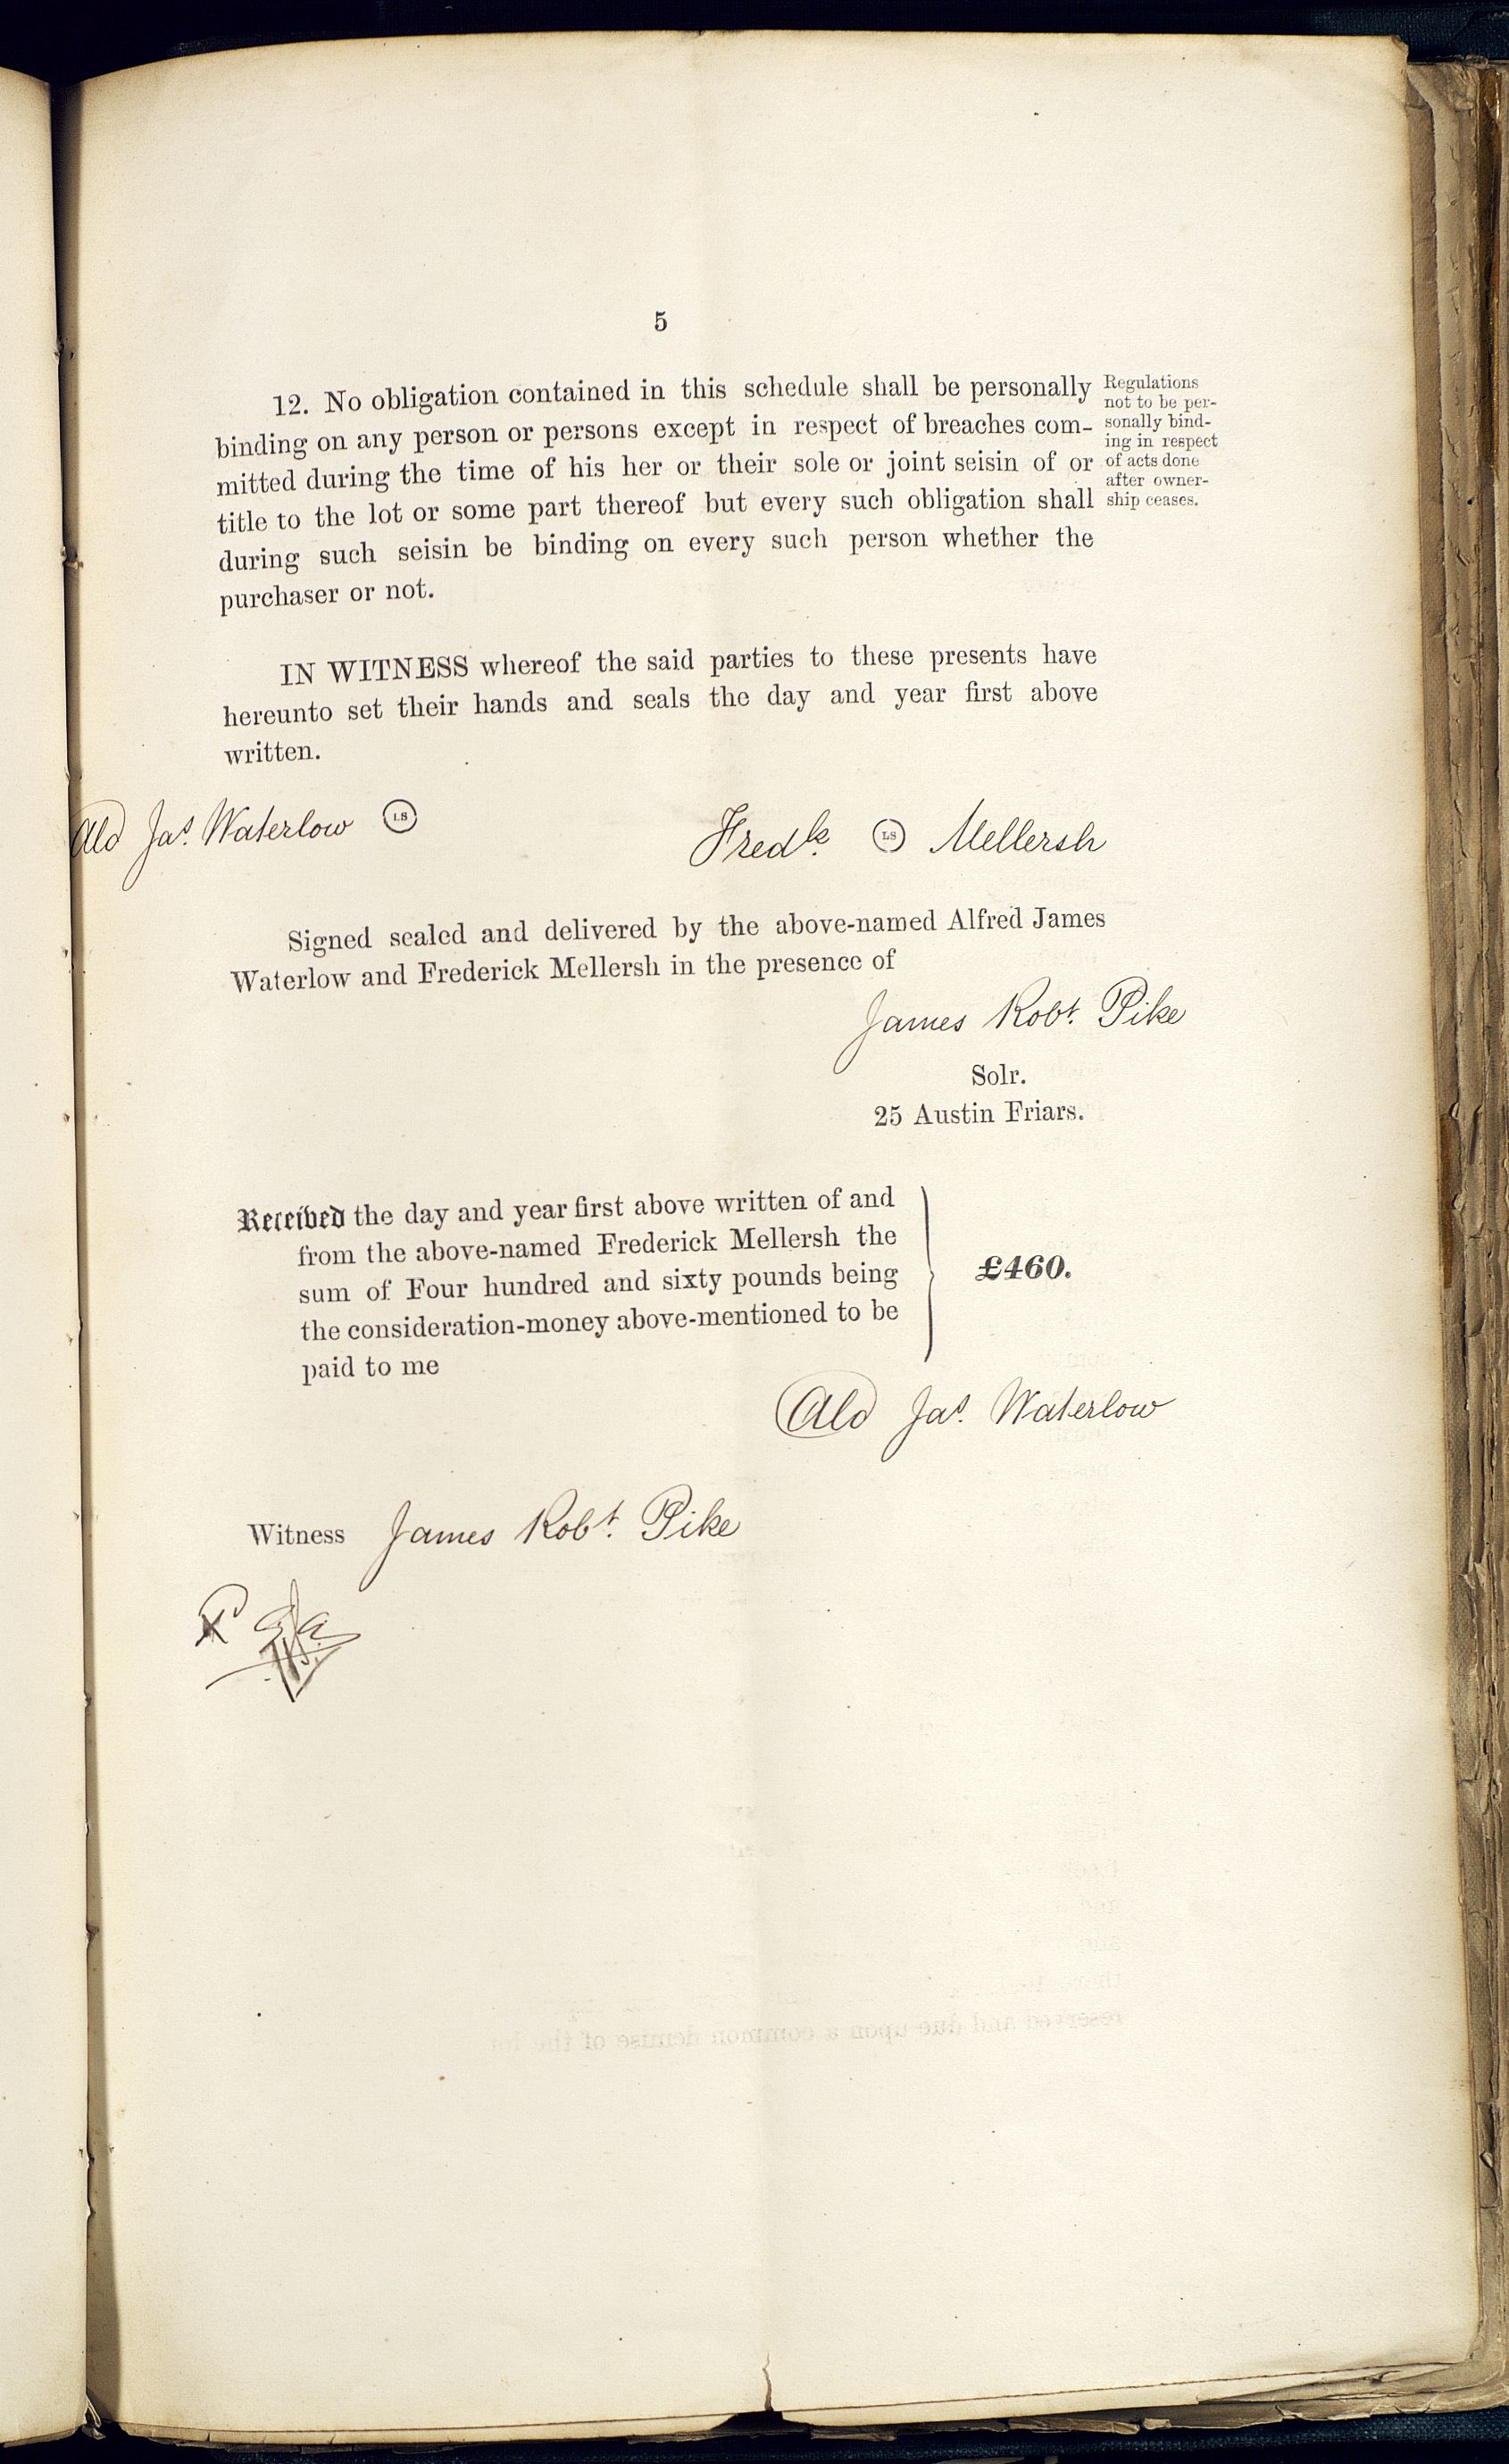 5
12. No obligation contained in this schedule shall be personally
binding on any person or persons except in respect of breaches com-
mitted during the time of his her or their sole or joint seisin of or
title to the lot or some part thereof but every such obligation shall
during such seisin be binding on every such person whether the
purchaser or not.
Regulations
not to be per-
sonally bind-
ing in respect
of acts done
after owner-
ship ceases.
IN WITNESS whereof the said parties to these presents have
hereunto set their hands and seals the day and year first above
written.
Ald Jas. Waterlow LS
Fredk. LS Mellersh
Signed sealed and delivered by the above-named Alfred James
Waterlow and Frederick Mellersh in the presence of
James Robt. Pike
Solr.
25 Austin Friars.
Received the day and year first above written of and
from the above-named Frederick Mellersh the
sum of Four hundred and sixty pounds being
the consideration-money above-mentioned to be
paid to me
£460.
Ald Jas. Waterlow
Witness James Robt. Pike